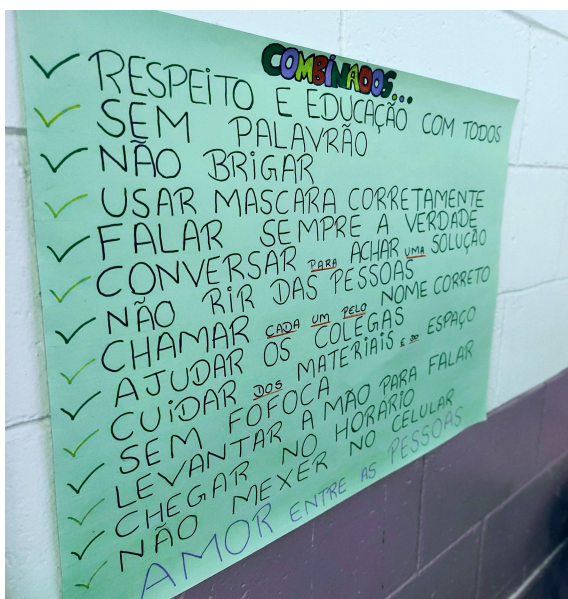 COMBINADOS...
RESPEITO E EDUCAÇÃO COM TODOS
SEM PALAVRÃO
NÃO BRIGAR
USAR MASCARA CORRETAMENTE
FALAR SEMPRE A VERDADE
CONVERSAR PARA ACHAR UMA SOLUÇÃO
NÃO RIR DAS PESSOAS
CHAMAR CADA UM PELO NOME CORRETO
AJUDAR OS COLEGAS
CUIDAR DOS MATERIAIS E DO ESPAÇO
SEM FOFOCA
LEVANTAR A MÃO PARA FALAR
CHEGAR NO HORÁRIO
NÃO MEXER NO CELULAR
AMOR ENTRE AS PESSOAS